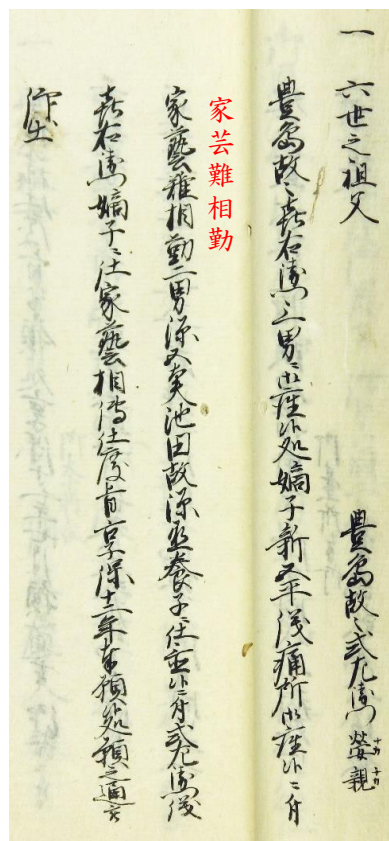 一 六世之祖父
豊嶋故々式左衛門 塋親
豊嶋故々喜右衛門三男ニ御座候処嫡子新五平儀痛所御座候ニ付
家芸難相勤
家藝難相勤二男源五里池田故源丞養子ニ仕置候ニ付式左衛門儀
喜右衛門嫡子ニ仕家藝相傳仕度旨享保十二年奉願処願之通被
仰出